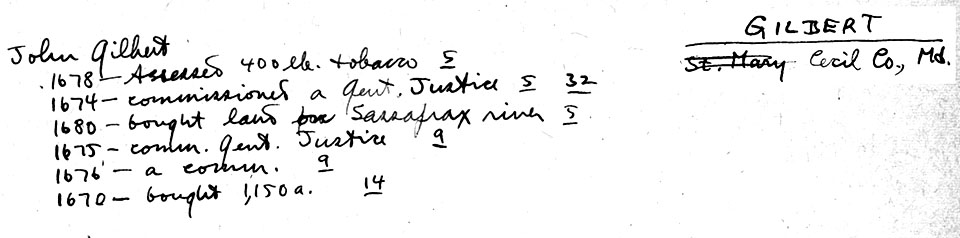 GILBERT
St. Mary Cecil Co., Md.
John Gilbert
1678 — Assessed 400 lb. tobacco 5
1674 — commissioned a Gent. Justice 5 32
1680 — bought land Sassafrax river 5
1675 — comm. Gent. Justice 9
1676 — a comm. 9
1670 — bought 1,150 a. 14